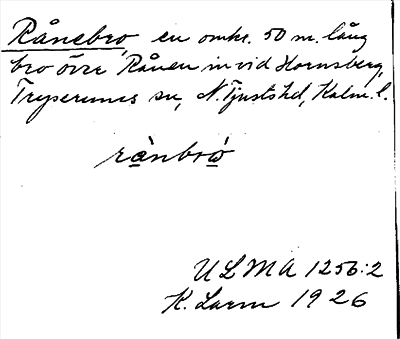 Rånebro, en omkr. 50 m. lång
bro övre Rånen invid Hornsberg,
Tryserums sn, N. Tjusts hd, Kalm. l.
rånbrò
ULMA 1256:2
K. Larm 1926